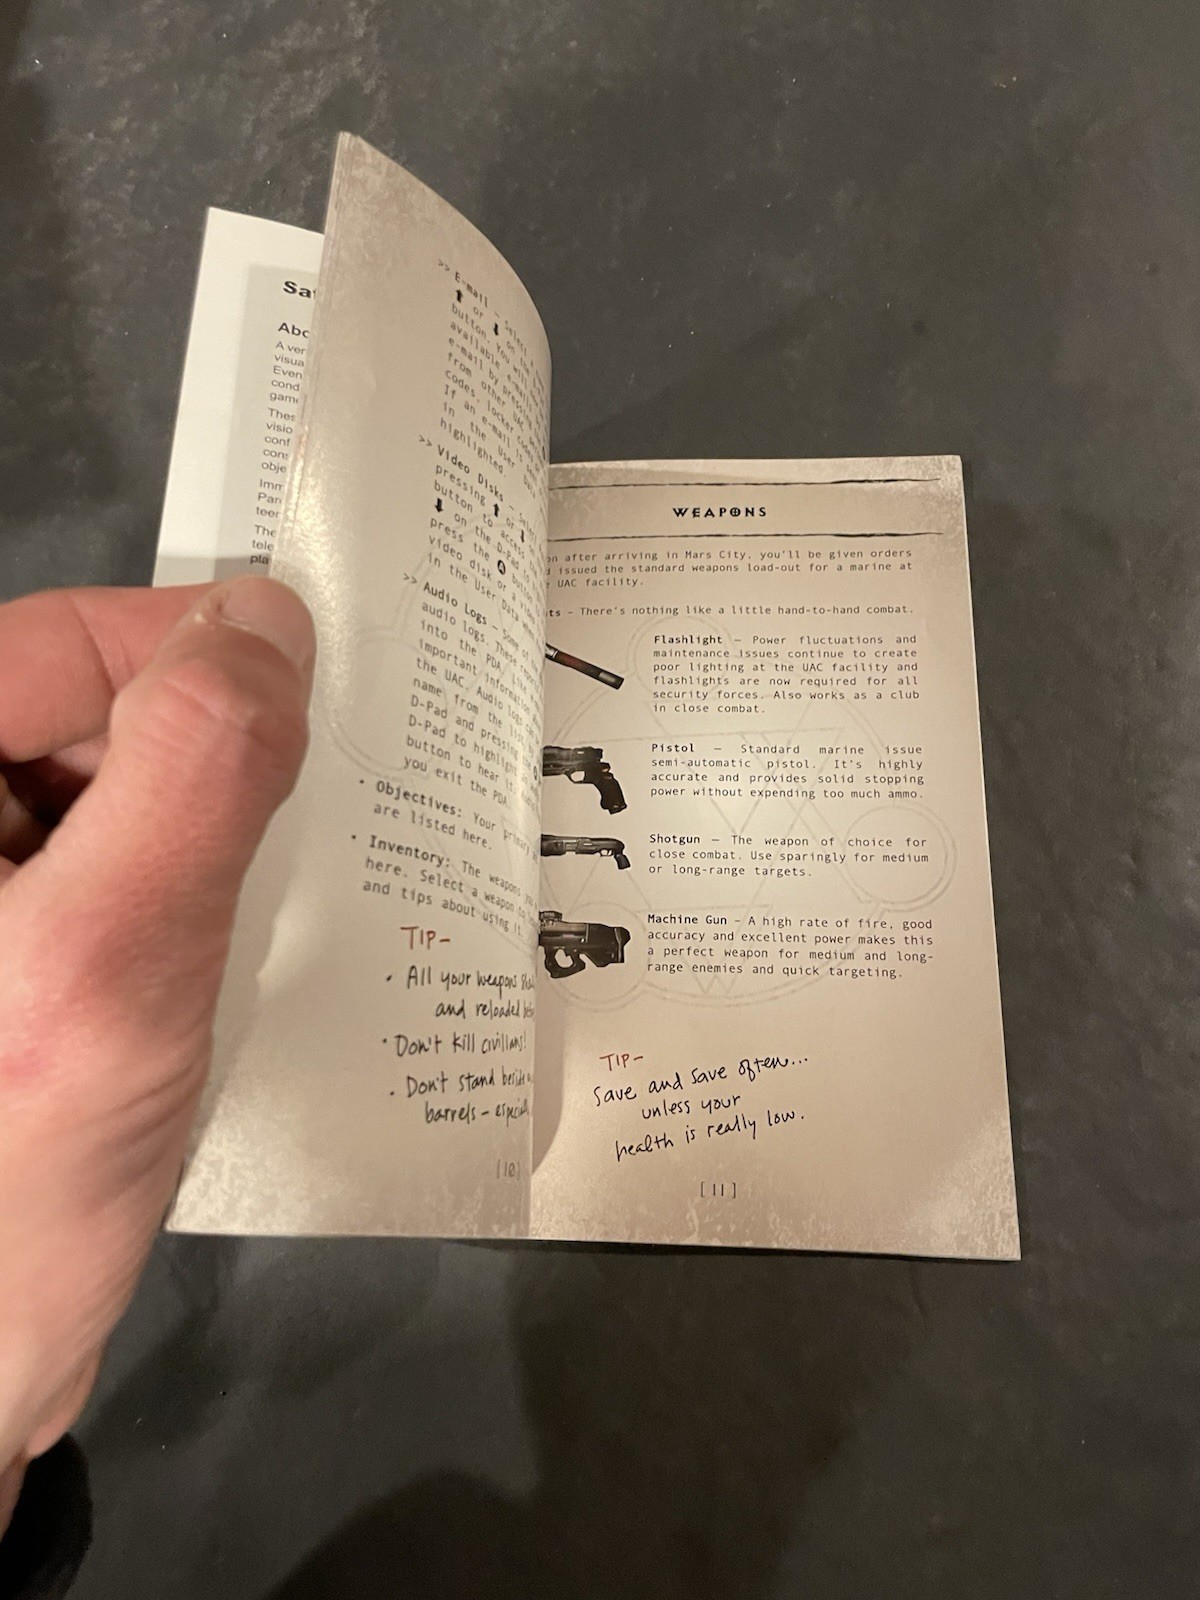 Abo
A ver
visua
Even
cond
game
Thes
visio
conf
obje
Imm
Par
teer
The
tele
pla
>> E-mail – Select
or on the
button. You will
available e-mails
e-mail by pressing
from other UAC
codes, locker codes
If an e-mail is
in the User Data
highlighted.
>> Video Disks – Select
pressing or
button to access
on the D-Pad to
press the A button
video disk or a video
in the User Data when
>> Audio Logs – Some of
audio logs. These
into the PDA. Like
important information
the UAC. Audio logs
name from the list
D-Pad and pressing the
D-Pad to highlight
button to hear it.
you exit the PDA.
• Objectives: Your primary
are listed here.
• Inventory: The weapons
here. Select a weapon to
and tips about using it.
TIP-
• All your weapons
and reloaded
• Don't kill civilians!
• Don't stand beside
barrels -
[10]
WEAPONS
on after arriving in Mars City, you'll be given orders
issued the standard weapons load-out for a marine at
UAC facility.
ts – There's nothing like a little hand-to-hand combat.
Flashlight – Power fluctuations and
maintenance issues continue to create
poor lighting at the UAC facility and
flashlights are now required for all
security forces. Also works as a club
in close combat.
Pistol – Standard marine issue
semi-automatic pistol. It's highly
accurate and provides solid stopping
power without expending too much ammo.
Shotgun – The weapon of choice for
close combat. Use sparingly for medium
or long-range targets.
Machine Gun – A high rate of fire, good
accuracy and excellent power makes this
a perfect weapon for medium and long-
range enemies and quick targeting.
TIP-
Save and save often...
unless your
health is really low.
[11]